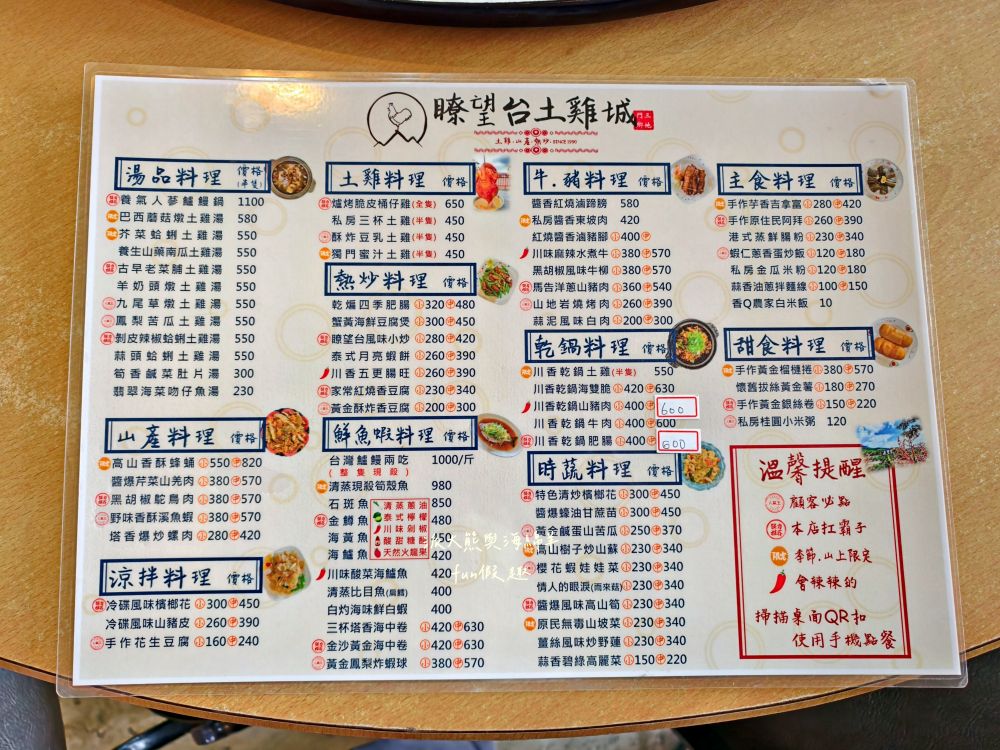 瞭望台土雞城
三地門鄉
土雞·山產·熱炒·SINCE 1990
湯品料理 價格(半隻)
養氣人蔘鱸鰻鍋 1100
巴西蘑菇燉土雞湯 580
芥菜蛤蜊土雞湯 550
養生山藥南瓜土雞湯 550
古早老菜脯土雞湯 550
羊奶頭燉土雞湯 550
九尾草燉土雞湯 550
鳳梨苦瓜土雞湯 550
剝皮辣椒蛤蜊土雞湯 550
蒜頭蛤蜊土雞湯 550
筍香鹹菜肚片湯 300
翡翠海菜吻仔魚湯 230
山產料理 價格
高山香酥蜂蛹 小550中820
醬爆芹菜山羌肉 小380中570
黑胡椒鴕鳥肉 小380中570
野味香酥溪魚蝦 小380中570
塔香爆炒螺肉 小280中420
涼拌料理 價格
冷碟風味檳榔花 小300中450
冷碟風味山豬皮 小260中390
手作花生豆腐 小160中240
土雞料理 價格
爐烤脆皮桶仔雞(全隻) 650
私房三杯土雞(半隻) 450
酥炸豆乳土雞(半隻) 450
獨門蜜汁土雞(半隻) 450
熱炒料理 價格
乾煸四季肥腸 小320中480
蟹黃海鮮豆腐煲 小300中450
瞭望台風味小炒 小280中420
泰式月亮蝦餅 小260中390
川香五更腸旺 小260中390
家常紅燒香豆腐 小230中340
黃金酥炸香豆腐 小200中300
鮮魚蝦料理 價格
台灣鱸鰻兩吃 1000/斤
(整隻現殺)
清蒸現殺筍殼魚 980
石斑魚 850
金鱒魚 480
海黃魚 420
海鱸魚 420
清蒸蔥油
泰式檸檬
川味剁椒
酸甜糖醋
天然火龍果
川味酸菜海鱸魚 420
清蒸比目魚(扁鱈) 400
白灼海味鮮白蝦 400
三杯塔香海中卷 小420中630
金沙黃金海中卷 小420中630
黃金鳳梨炸蝦球 小380中570
牛.豬料理 價格
醬香紅燒滷蹄膀 580
私房醬香東坡肉 420
紅燒醬香滷豬腳 小400中
川味麻辣水煮牛 小380中570
黑胡椒風味牛柳 小380中570
馬告洋蔥山豬肉 小360中540
山地岩燒烤肉 小260中390
蒜泥風味白肉 小200中300
乾鍋料理 價格
川香乾鍋土雞(半隻) 550
川香乾鍋海雙脆 小420中630
川香乾鍋山豬肉 小400中600
川香乾鍋牛肉 小400中600
川香乾鍋肥腸 小400中600
時蔬料理 價格
特色清炒檳榔花 小300中450
醬爆蜂油甘蔗苗 小300中450
黃金鹹蛋山苦瓜 小250中370
高山樹子炒山蘇 小230中340
櫻花蝦娃娃菜 小230中340
情人的眼淚(雨來菇) 小230中340
醬爆風味高山筍 小230中340
原民無毒山坡菜 小230中340
薑絲風味炒野蓮 小230中340
蒜香碧綠高麗菜 小150中220
主食料理 價格
手作芋香吉拿富 小280中420
手作原住民阿拜 小260中390
港式蒸鮮腸粉 小230中340
蝦仁蔥香蛋炒飯 小120中180
私房金瓜米粉 小120中180
蒜香油蔥拌麵線 小100中150
香Q農家白米飯 10
甜食料理 價格
手作黃金榴槤捲 小380中570
懷舊拔絲黃金薯 小180中270
手作黃金銀絲卷 小150中220
私房桂圓小米粥 120
溫馨提醒
顧客必點
本店扛霸子
季節.山上限定
會辣辣的
掃描桌面QR扣
使用手機點餐
fun假趣